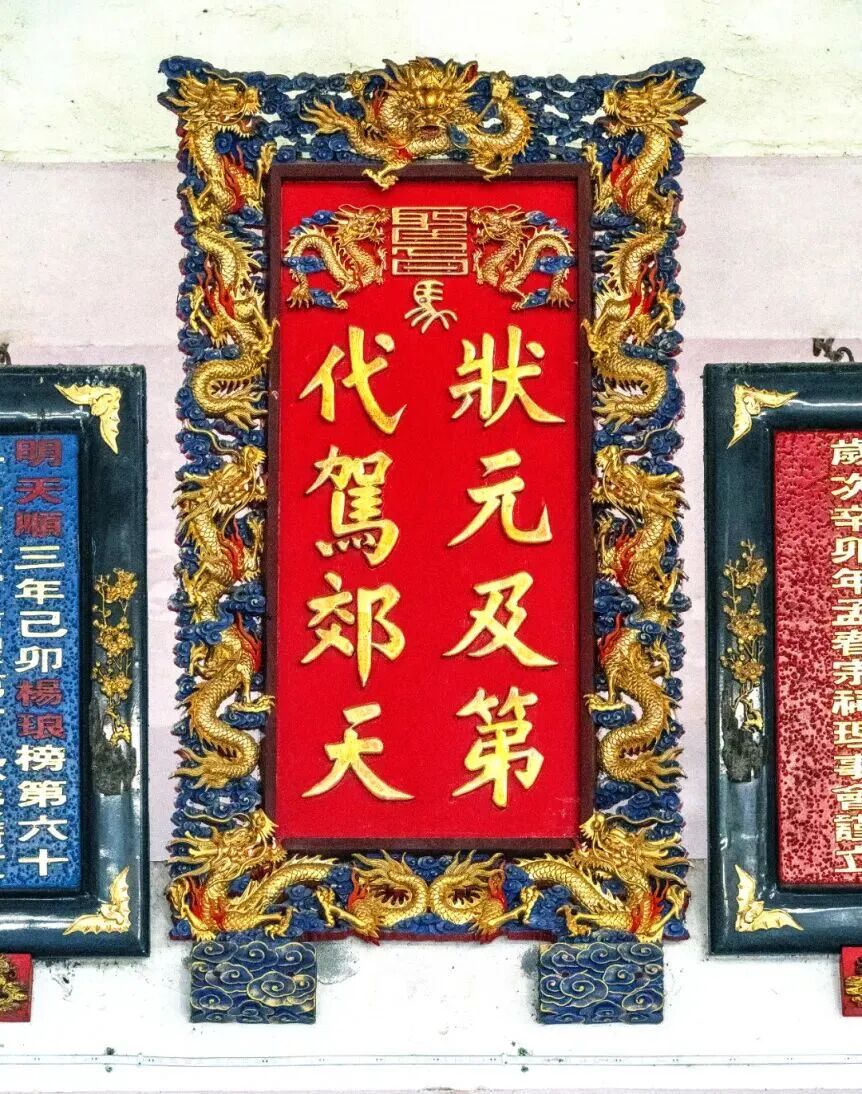 歲次辛卯年孟春宗祠理事會謹立
聖旨
狀元及第
代駕郊天
明天順三年己卯楊琅榜第六十